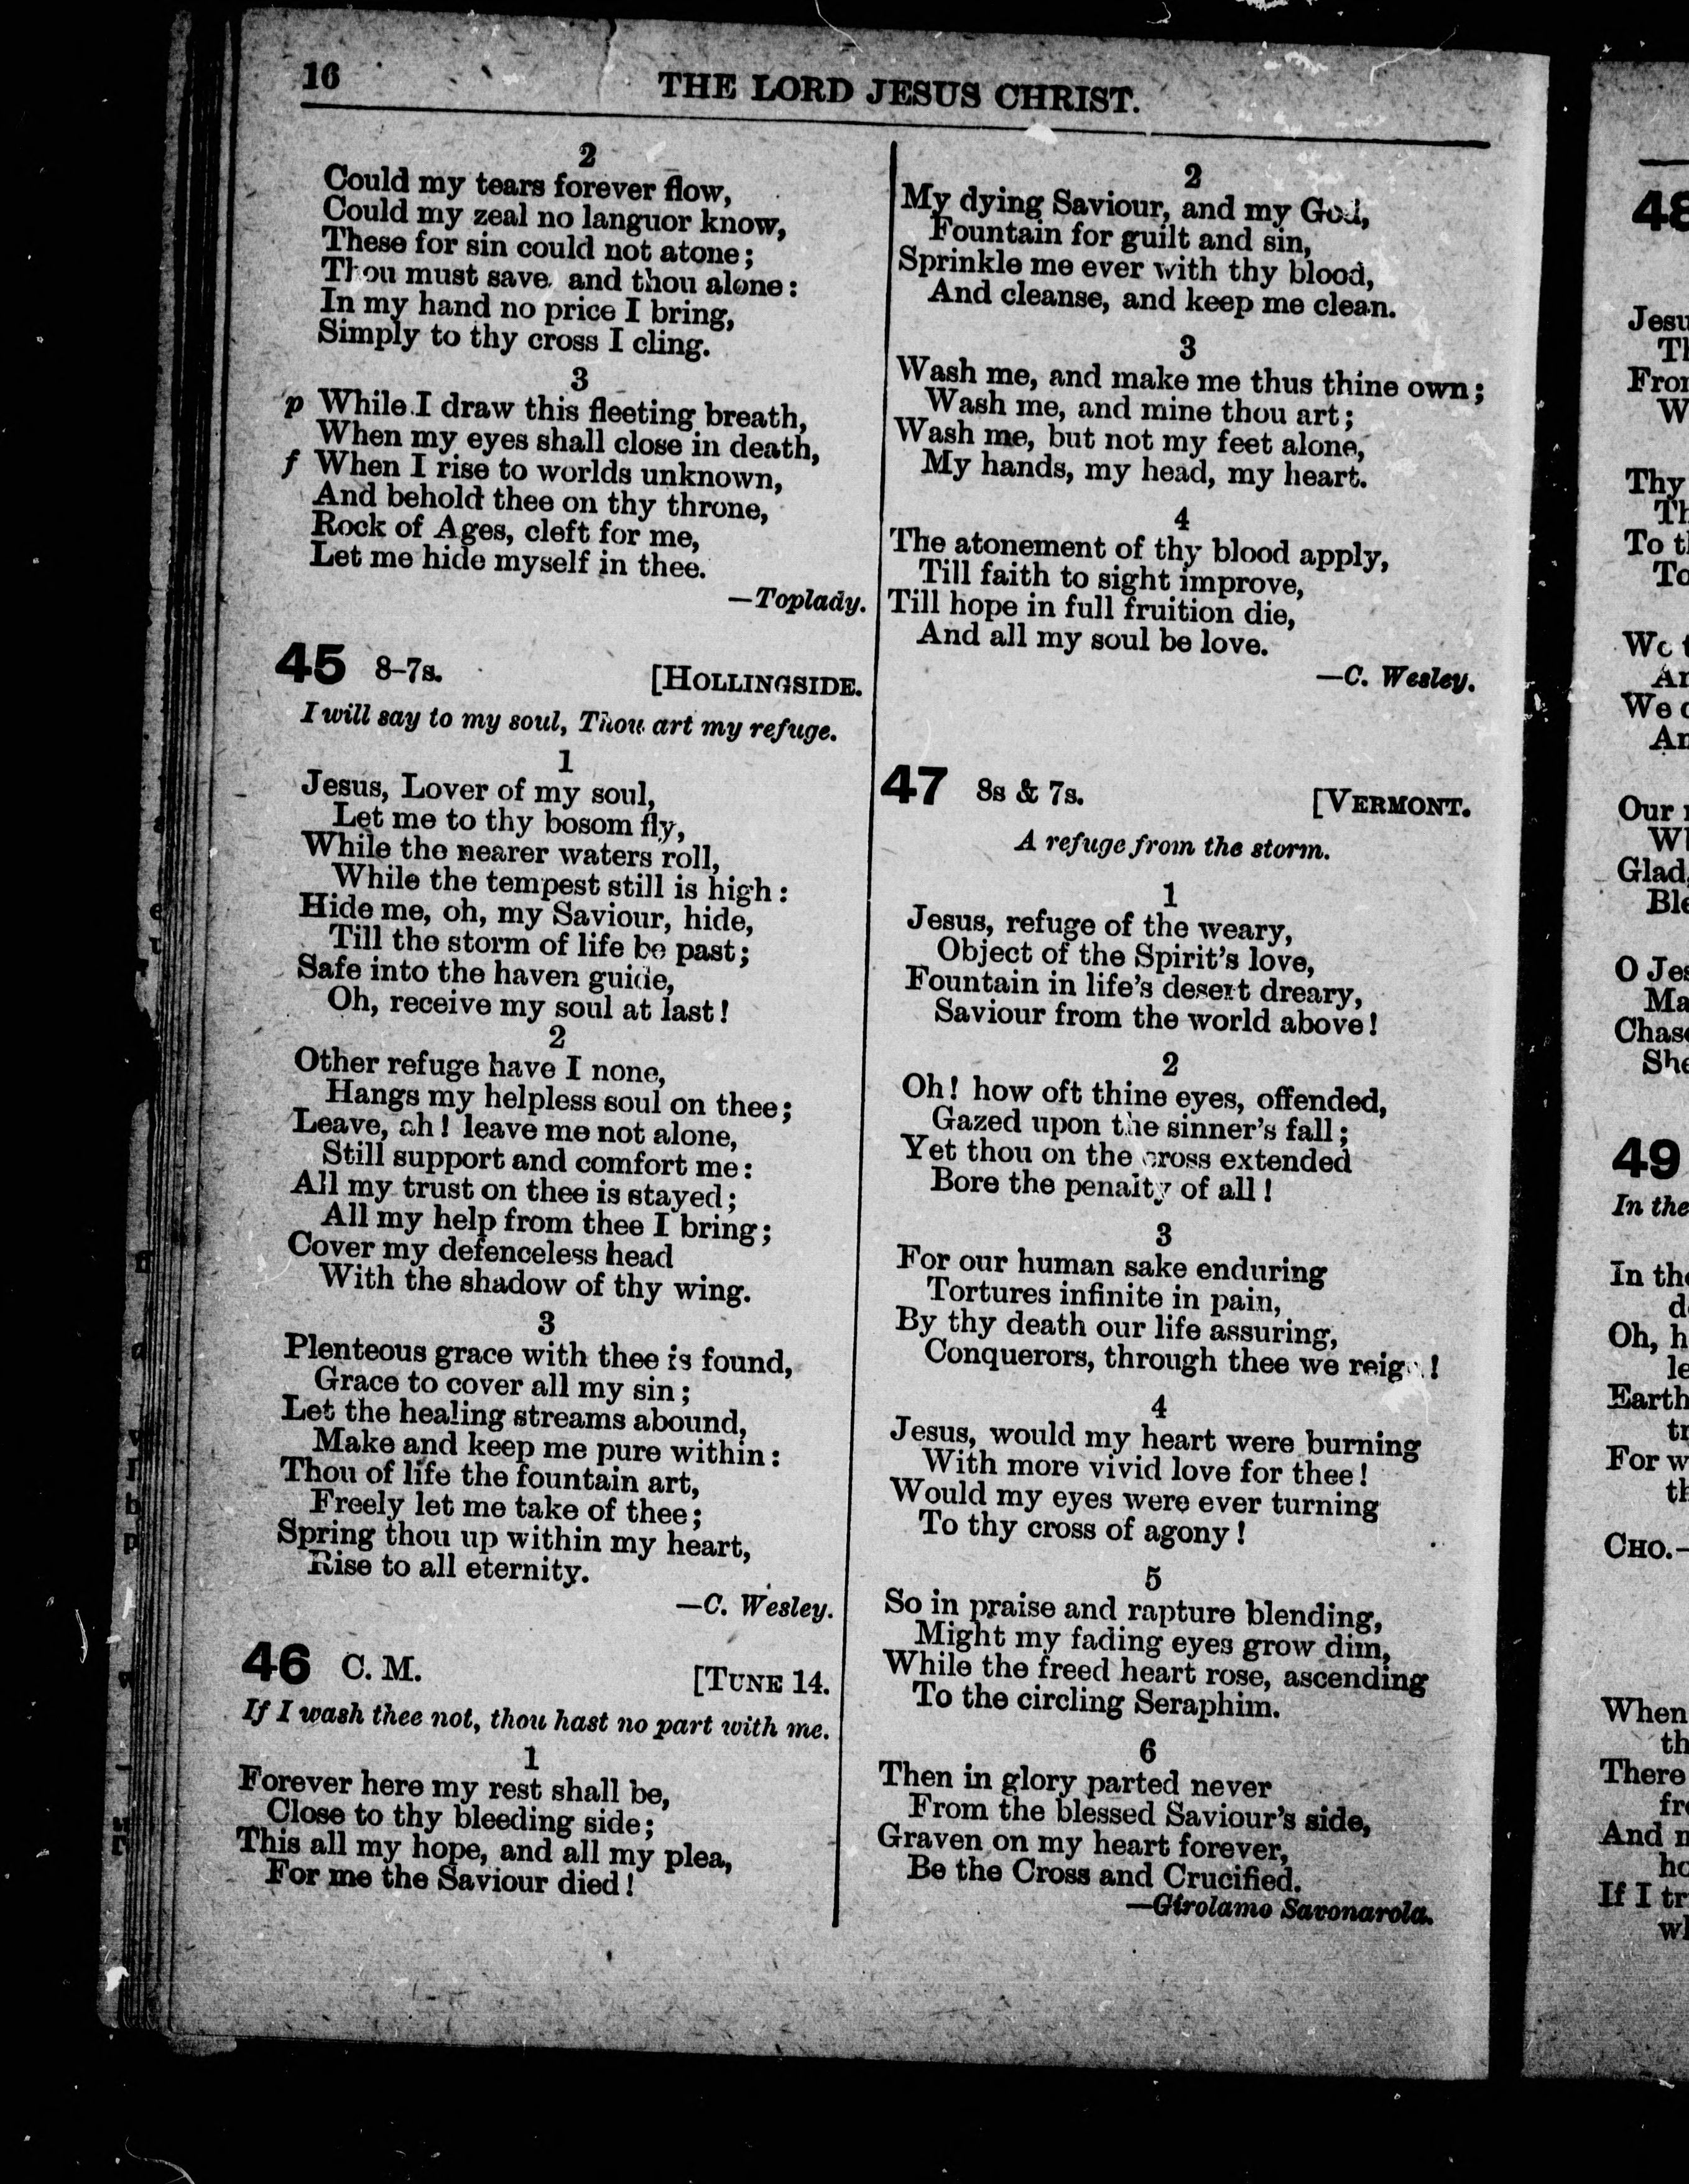 16
THE LORD JESUS CHRIST.
2
Could my tears forever flow,
Could my zeal no languor know,
These for sin could not atone;
Thou must save, and thou alone:
In my hand no price I bring,
Simply to thy cross I cling.
3
p While I draw this fleeting breath,
When my eyes shall close in death,
f When I rise to worlds unknown,
And behold thee on thy throne,
Rock of Ages, cleft for me,
Let me hide myself in thee.
—Toplady.
45 8-7s. [HOLLINGSIDE.
I will say to my soul, Thou art my refuge.
1
Jesus, Lover of my soul,
Let me to thy bosom fly,
While the nearer waters roll,
While the tempest still is high:
Hide me, oh, my Saviour, hide,
Till the storm of life be past;
Safe into the haven guide,
Oh, receive my soul at last!
2
Other refuge have I none,
Hangs my helpless soul on thee;
Leave, ah! leave me not alone,
Still support and comfort me:
All my trust on thee is stayed;
All my help from thee I bring;
Cover my defenceless head
With the shadow of thy wing.
3
Plenteous grace with thee is found,
Grace to cover all my sin;
Let the healing streams abound,
Make and keep me pure within:
Thou of life the fountain art,
Freely let me take of thee;
Spring thou up within my heart,
Rise to all eternity.
—C. Wesley.
46 C. M. [TUNE 14.
If I wash thee not, thou hast no part with me.
1
Forever here my rest shall be,
Close to thy bleeding side;
This all my hope, and all my plea,
For me the Saviour died!
2
My dying Saviour, and my God,
Fountain for guilt and sin,
Sprinkle me ever with thy blood,
And cleanse, and keep me clean.
3
Wash me, and make me thus thine own;
Wash me, and mine thou art;
Wash me, but not my feet alone,
My hands, my head, my heart.
4
The atonement of thy blood apply,
Till faith to sight improve,
Till hope in full fruition die,
And all my soul be love.
—C. Wesley.
47 8s & 7s. [VERMONT.
A refuge from the storm.
1
Jesus, refuge of the weary,
Object of the Spirit's love,
Fountain in life's desert dreary,
Saviour from the world above!
2
Oh! how oft thine eyes, offended,
Gazed upon the sinner's fall;
Yet thou on the cross extended
Bore the penalty of all!
3
For our human sake enduring
Tortures infinite in pain,
By thy death our life assuring,
Conquerors, through thee we reign!
4
Jesus, would my heart were burning
With more vivid love for thee!
Would my eyes were ever turning
To thy cross of agony!
5
So in praise and rapture blending,
Might my fading eyes grow dim,
While the freed heart rose, ascending
To the circling Seraphim.
6
Then in glory parted never
From the blessed Saviour's side,
Graven on my heart forever,
Be the Cross and Crucified.
—Girolamo Savonarola.
48
Thy
To
We
Our
Glad,
O
49
In the
In
Oh,
Earth
For
CHO.—
When
There
And
If I